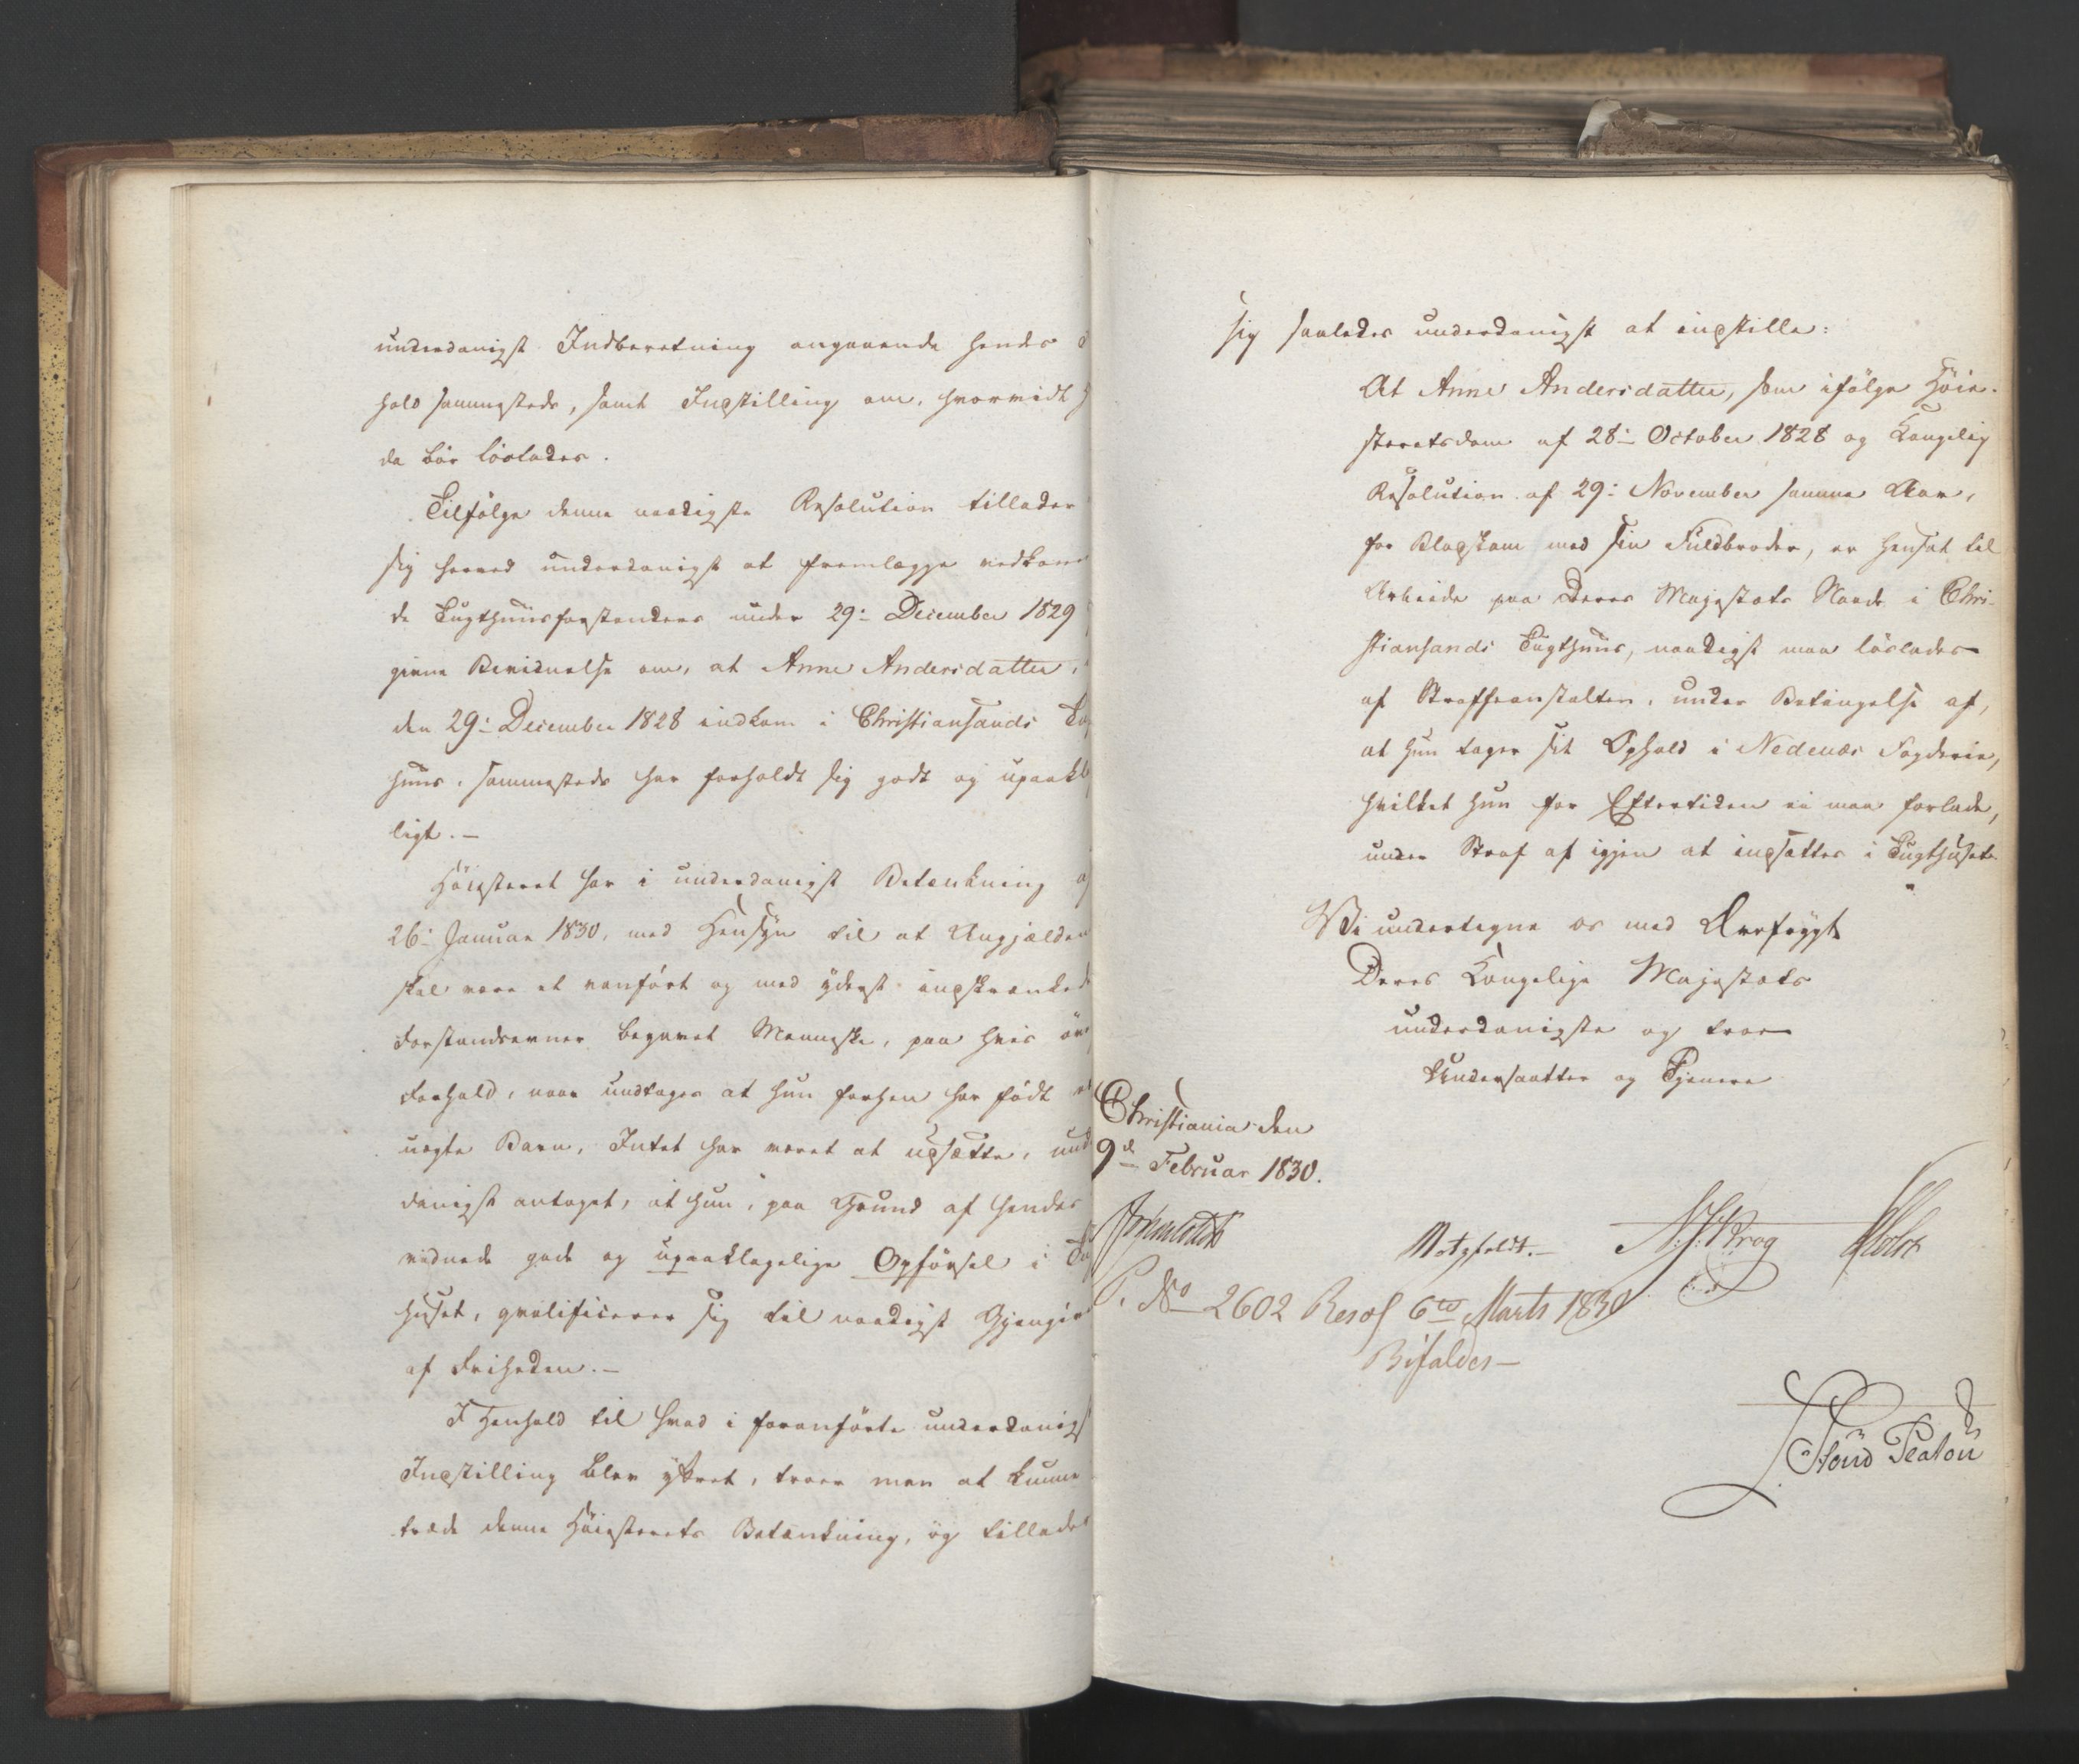 underdanigst Indberetning angaaende hendes
hold sammesteds, samt Indstilling om, hvorvidt
da bør løslades.
Tilfølge denne naadigste Resolution tillader
sig herved underdanigst at fremlægge vedkom
de Tugthuusforstanders under 29: December 1829
givne Bevidnelse om, at Anne Andersdatter,
den 29: December 1828 indkom i Christiansands
huus, sammesteds har forholdt sig godt og upaakla
ligt. —
Høiesteret har i underdanigst Betænkning
26: Januar 1830, med Hensyn til at Angjælden
skal være et vanført og med yderst indskrænkede
Forstandsevner begavet Menneske, paa hvis øv
Forhold, naar undtages at hun forhen har født
uægte Barn, Intet har været at udsætte, und
danigst antaget, at hun, paa Grund af hendes
vidnede gode og upaaklagelige Opførsel i
huset, qvalificerer sig til naadigst Gjengiv
af Friheden. —
I Henhold til hvad i foranførte underdanigst
Indstilling blev yttret, troer man at kunne
træde denne Høiesterets Betænkning, og tillader
sig saaledes underdanigst at indstille:
At Anne Andersdatter, som ifølge Høie-
steretsdom af 28: October 1828 og Kongelig
Resolution af 29: November samme Aar,
for Blodskam med sin Fuldbroder, er hensat til
Arbeide paa Deres Majestæts Naade i Chri-
stiansands Tugthuus, naadigst maa løslades
af Straffeanstalten, under Betingelse af,
at hun tager sit Ophold i Nedenæs Fogderie,
hvilket hun for Eftertiden ei maa forlade,
under Straf af igjen at indsættes i Tugthuset.
Vi undertegne os med Ærefrygt
Deres Kongelige Majestæts
underdanigste og troe
Undersaatter og Tjenere
Christiania den
9de Februar 1830.
Motzfeldt. N. J. Krog Holst
P. No 2602 Resol 6te Marts 1830
Bifaldes —